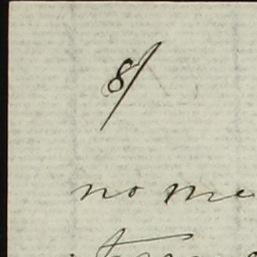 8/
no me